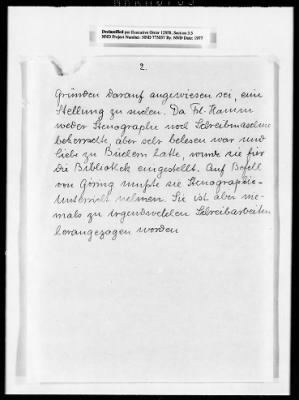 Declassified per Executive Order 12958, Section 3.5
NND Project Number: NND 775057 By: NND Date: 1977
2.
Gründen darauf angewiesen sei, eine
Stellung zu suchen. Da Frl. Hamm
weder Stenographie noch Schreibmaschine
beherrschte, aber sehr belesen war und
Liebe zu Büchern hatte, wurde sie für
die Bibliothek eingestellt. Auf Befehl
von Göring mußte sie Stenographie-
Unterricht nehmen. Sie ist aber nie-
mals zu irgendwelchen Schreibarbeiten
herangezogen worden